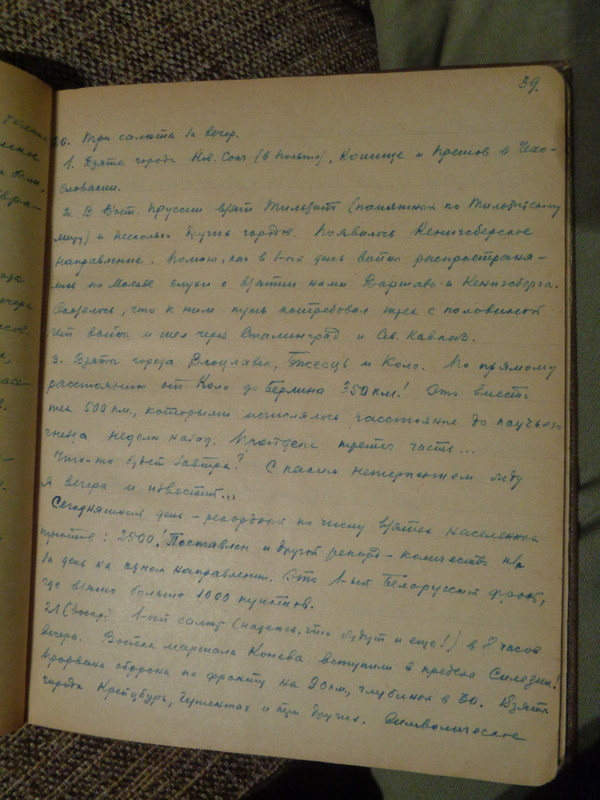 39.
20. Три салюта за вечер.
1. Взяты города Нов. Сонч (в Польше), Кошице и Прешов в Чехо-
словакии.
2. В Вост. Пруссии взят Тильзит (памятный по Тильзитскому
миру) и несколько других городов. Появилось Кенигсбергское
направление. Помню, как в 1-ый день войны распространя-
лись по Москве слухи о взятии нами Варшавы и Кенигсберга.
Оказалось, что к ним путь потребовал трех с половиной
лет войны и шел через Сталинград и Св. Кавказ.
3. Взяты города Влоцлавек, Бжесць и Коло. По прямому
расстоянию от Коло до Берлина 350 км! Это вместо
тех 500 км, которыми исчислялось расстояние до паучьего
гнезда неделю назад. Пройдена третья часть...
Что-то будет завтра? С каким нетерпением жду
я вечера и известий...
Сегодняшний день - рекордный по числу взятых населенных
пунктов: 2500! Поставлен и другой рекорд - количество н/п
за день на одном направлении. Это 1-ый Белорусский фронт,
где взято больше 1000 пунктов.
21 (воскр. 1-ый салют (надеюсь, что будут и еще!) в 8 часов
вечера. Войска маршала Конева вступили в пределы Силезии.
Прорвана оборона по фронту на 90 км, глубиной в 30. Взяты
города Крейцбург, Гутентаг и три других. Символическое